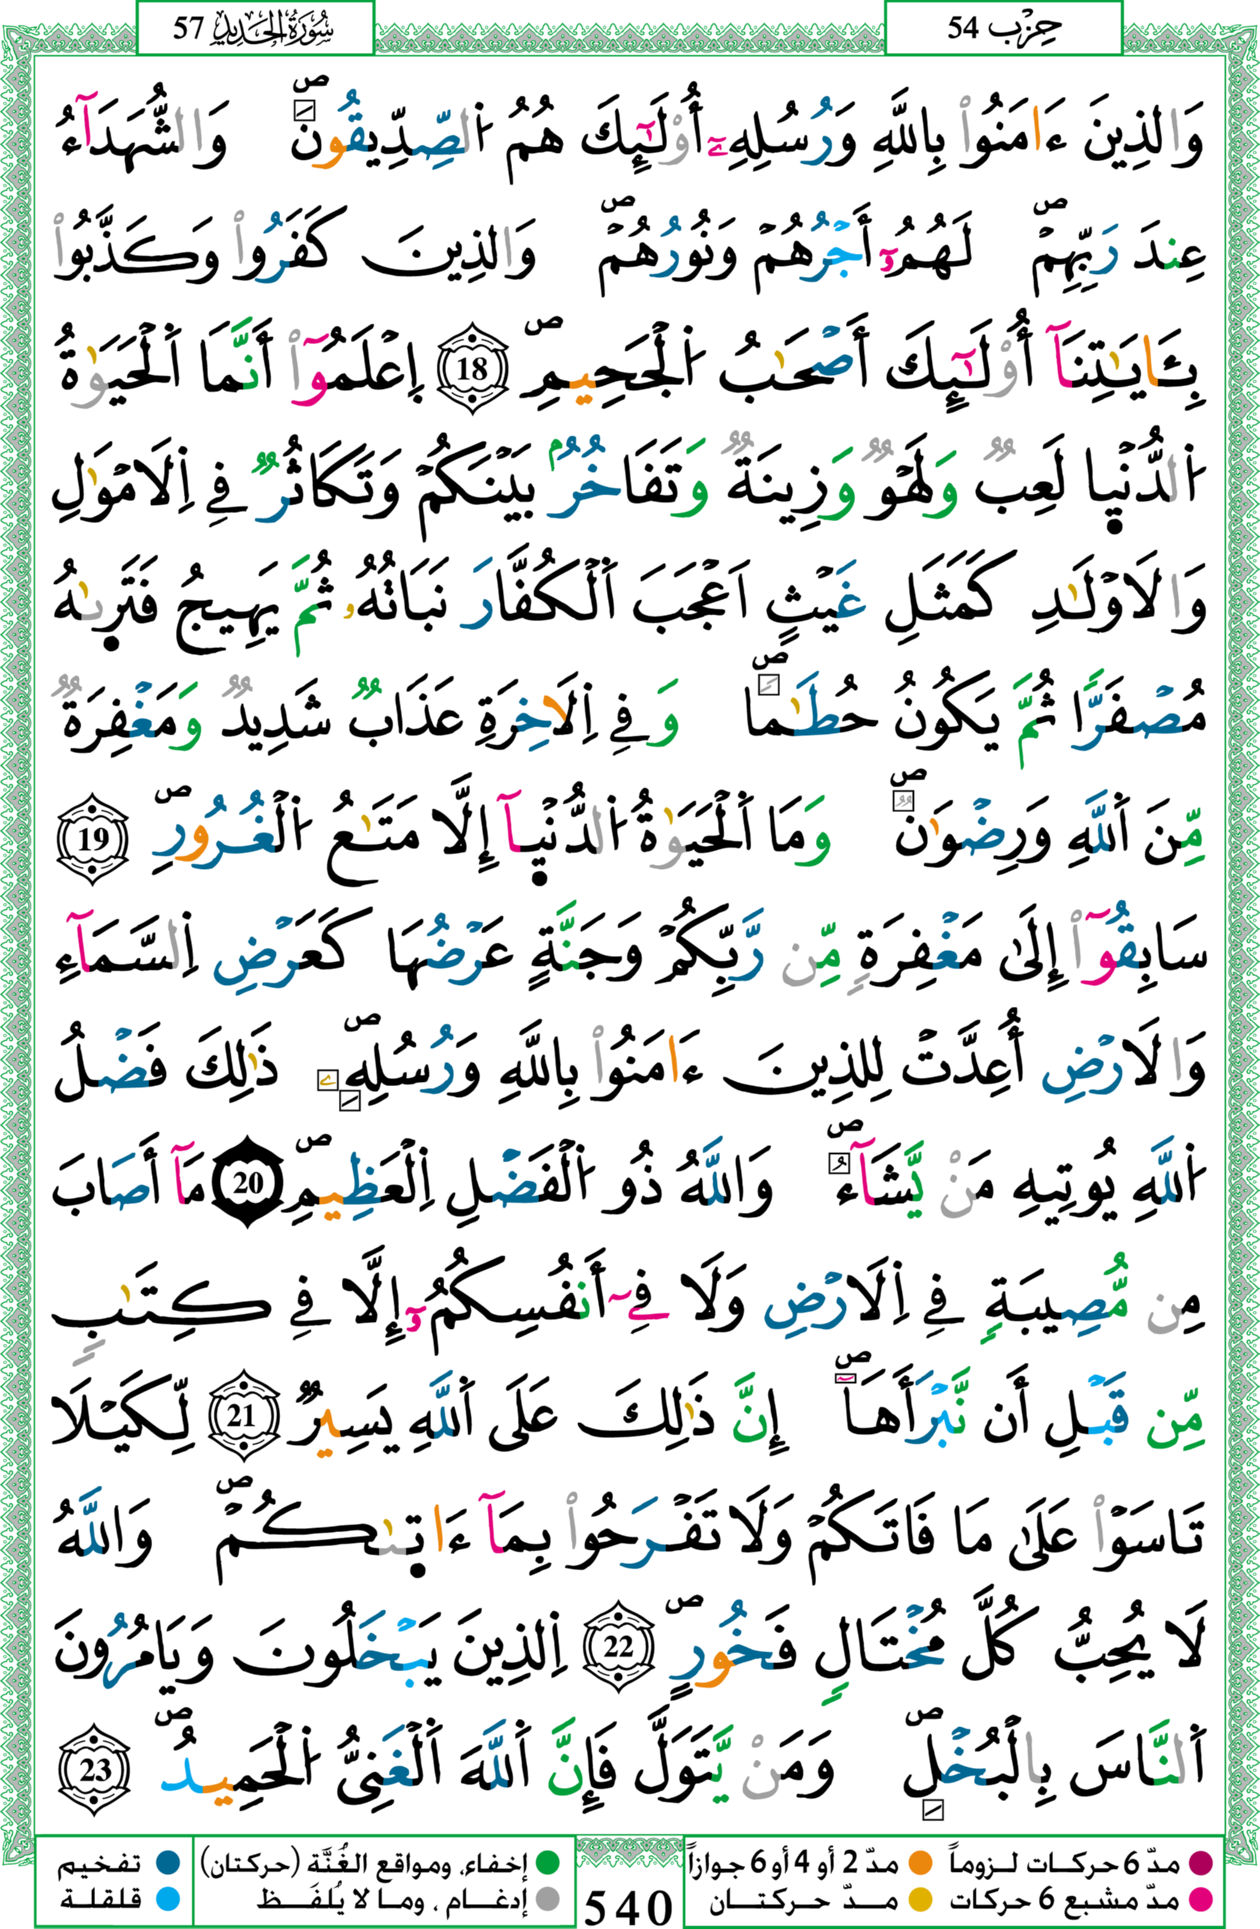 سُورَةُ الحَدِيدِ 57
حِزْب 54
وَالذِينَ ءَامَنُواْ بِاللَّهِ وَرُسُلِهِۦٓ أُوْلَٰٓئِكَ هُمُ اُ۬لصِّدِّيقُونَۖ وَالشُّهَدَآءُ
عِندَ رَبِّهِمْۖ لَهُمُۥٓ أَجْرُهُمْ وَنُورُهُمْۖ وَالذِينَ كَفَرُواْ وَكَذَّبُواْ
بِـَٔايَٰتِنَآ أُوْلَٰٓئِكَ أَصْحَٰبُ اُ۬لْجَحِيمِۖ 18 اِ۪عْلَمُوٓاْ أَنَّمَا اَ۬لْحَيَوٰةُ
اُ۬لدُّنْي۪ا لَعِبٞ وَلَهْوٞ وَزِينَةٞ وَتَفَاخُرُۢ بَيْنَكُمْ وَتَكَاثُرٞ فِي اِ۬لَامْوَٰلِ
وَالَاوْلَٰدِ كَمَثَلِ غَيْثٍ اَعْجَبَ اَ۬لْكُفَّارَ نَبَاتُهُۥ ثُمَّ يَهِيجُ فَتَر۪ىٰهُ
مُصْفَرّٗا ثُمَّ يَكُونُ حُطَٰماٗۖ وَفِي اِ۬لَاخِرَةِ عَذَابٞ شَدِيدٞ وَمَغْفِرَةٞ
مِّنَ اَ۬للَّهِ وَرِضْوَٰنٞۖ وَمَا اَ۬لْحَيَوٰةُ اُ۬لدُّنْي۪آ إِلَّا مَتَٰعُ اُ۬لْغُرُورِۖ 19
سَابِقُوٓاْ إِلَىٰ مَغْفِرَةٖ مِّن رَّبِّكُمْ وَجَنَّةٍ عَرْضُهَا كَعَرْضِ اِ۬لسَّمَآءِ
وَالَارْضِ أُعِدَّتْ لِلذِينَ ءَامَنُواْ بِاللَّهِ وَرُسُلِهِۦۖ ذَٰلِكَ فَضْلُ
اُ۬للَّهِ يُوتِيهِ مَنْ يَّشَآءُۖ وَاللَّهُ ذُو اُ۬لْفَضْلِ اِ۬لْعَظِيمِۖ 20 مَآ أَصَابَ
مِن مُّصِيبَةٖ فِي اِ۬لَارْضِ وَلَا فِيٓ أَنفُسِكُمُۥٓ إِلَّا فِي كِتَٰبٖ
مِّن قَبْلِ أَن نَّبْرَأَهَآۖ إِنَّ ذَٰلِكَ عَلَى اَ۬للَّهِ يَسِيرٞ 21 لِّكَيْلَا
تَاسَوْاْ عَلَىٰ مَا فَاتَكُمْ وَلَا تَفْرَحُواْ بِمَآ ءَات۪ىٰكُمْۖ وَاللَّهُ
لَا يُحِبُّ كُلَّ مُخْتَالٖ فَخُورٍۖ 22 اِ۬لذِينَ يَبْخَلُونَ وَيَامُرُونَ
اَ۬لنَّاسَ بِالْبُخْلِۖ وَمَنْ يَّتَوَلَّ فَإِنَّ اَ۬للَّهَ اَ۬لْغَنِيُّ اُ۬لْحَمِيدُۖ 23
مدّ 6 حركات لـزوماً مدّ 2 أو 4 أو 6 جوازاً
إخفاء، ومواقع الغُنَّة (حركتان) تفخيم
مدّ مشبع 6 حركات مـدّ حركتـان
540
إدغـام ، ومـا لا يُلفَـظ قلقلة